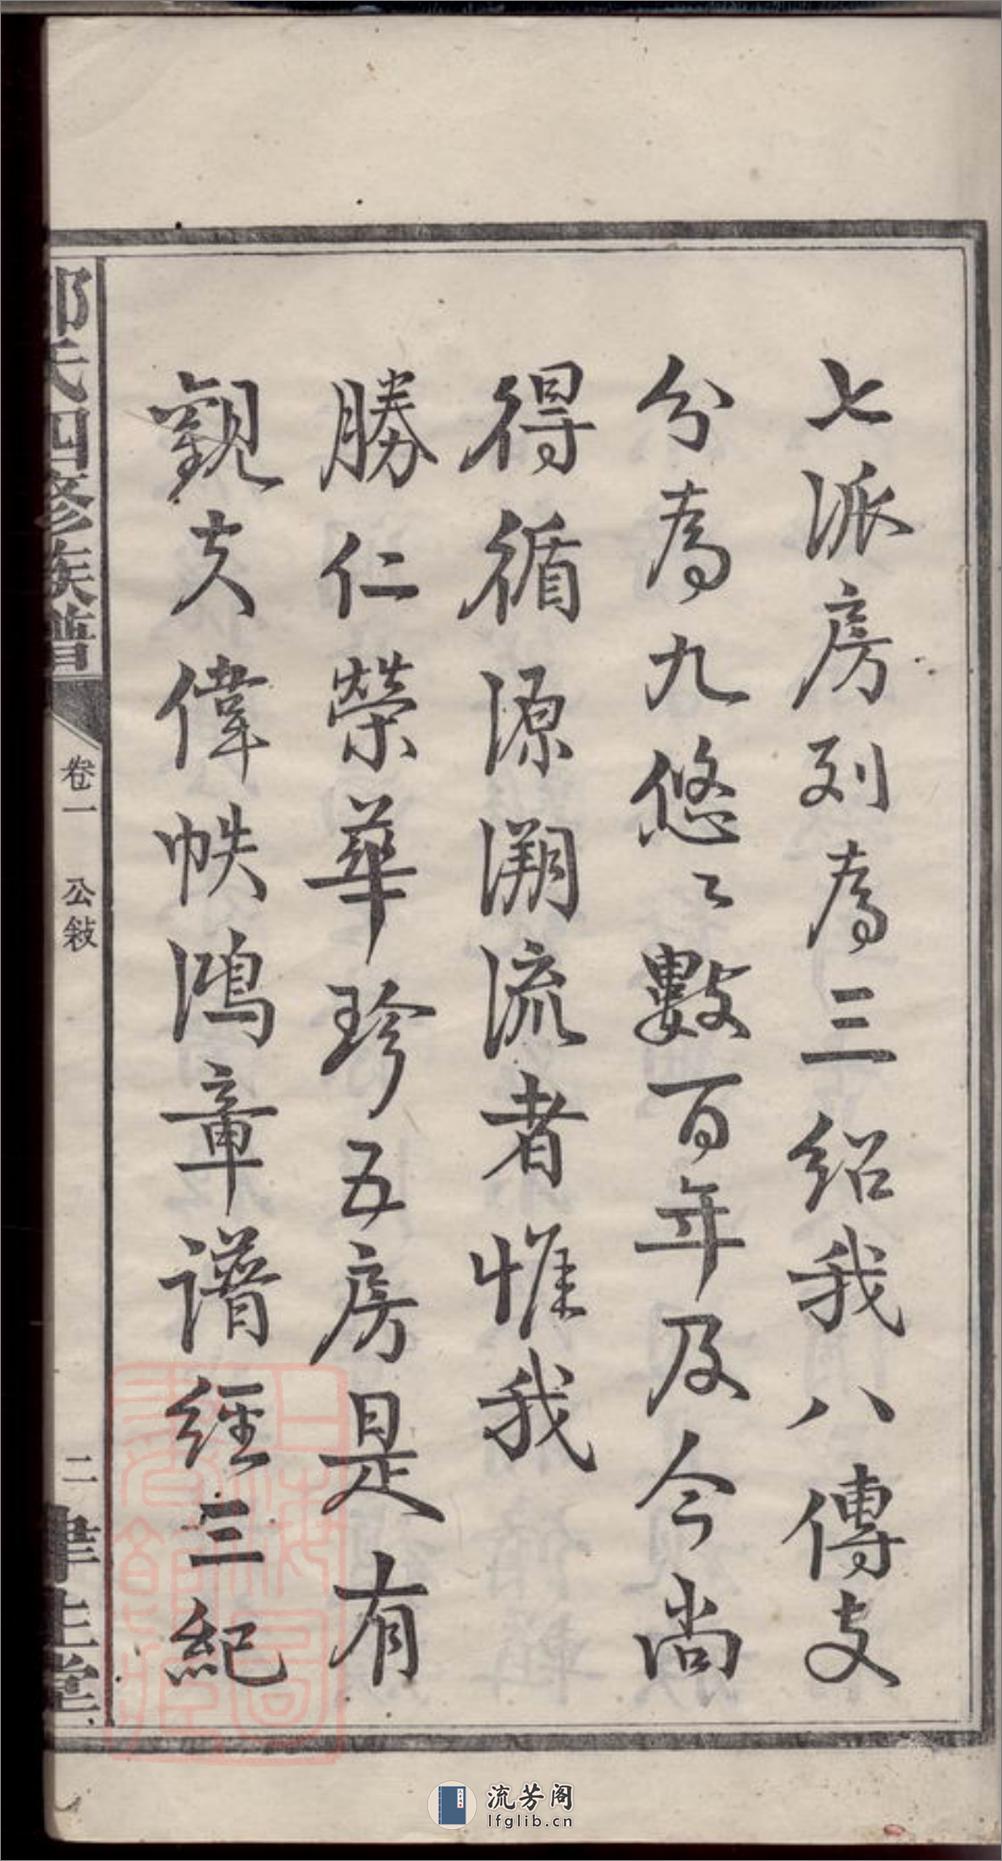 七派房列為三紹我八傳支
分為九悠〻數百年及今尚
得循源溯流者惟我
勝仁榮華珍五房是有
觀夫偉帙鴻章譜經三紀
氏四修族譜
卷一 公敍
二
堂
上海圖書館藏
流芳阁
lfglib.cn